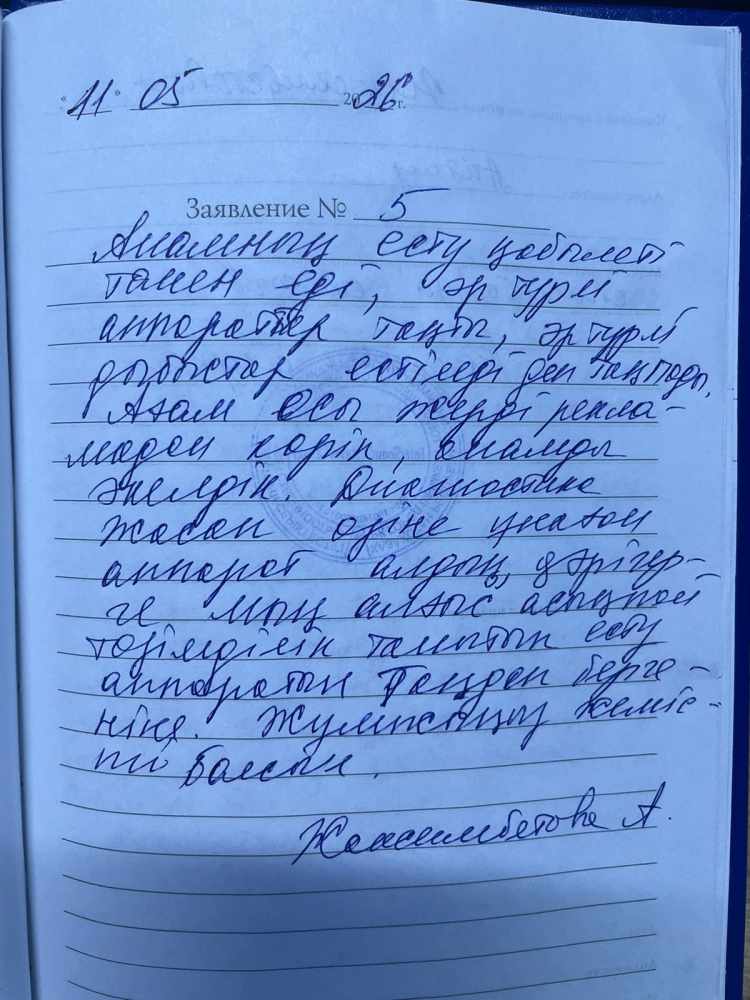 "11" 05 2026 г.
Заявление № 5
Анамның есту қабылеті
төмен еді, әр түрлі
аппараттар тақты, әр түрлі
дыбыстар естіледі деп тақпады.
Ағам осы жерді рекла-
мадан көріп, анамды
әкелдік. Диагностика
жасап өзіне ұнаған
аппарат алдық, дәрігер-
ге мың алғыс асықпай
төзімділік танытып есту
аппаратын таңдап берге-
ніңе. Жұмысыңыз жеміс-
ті болсын.
А.